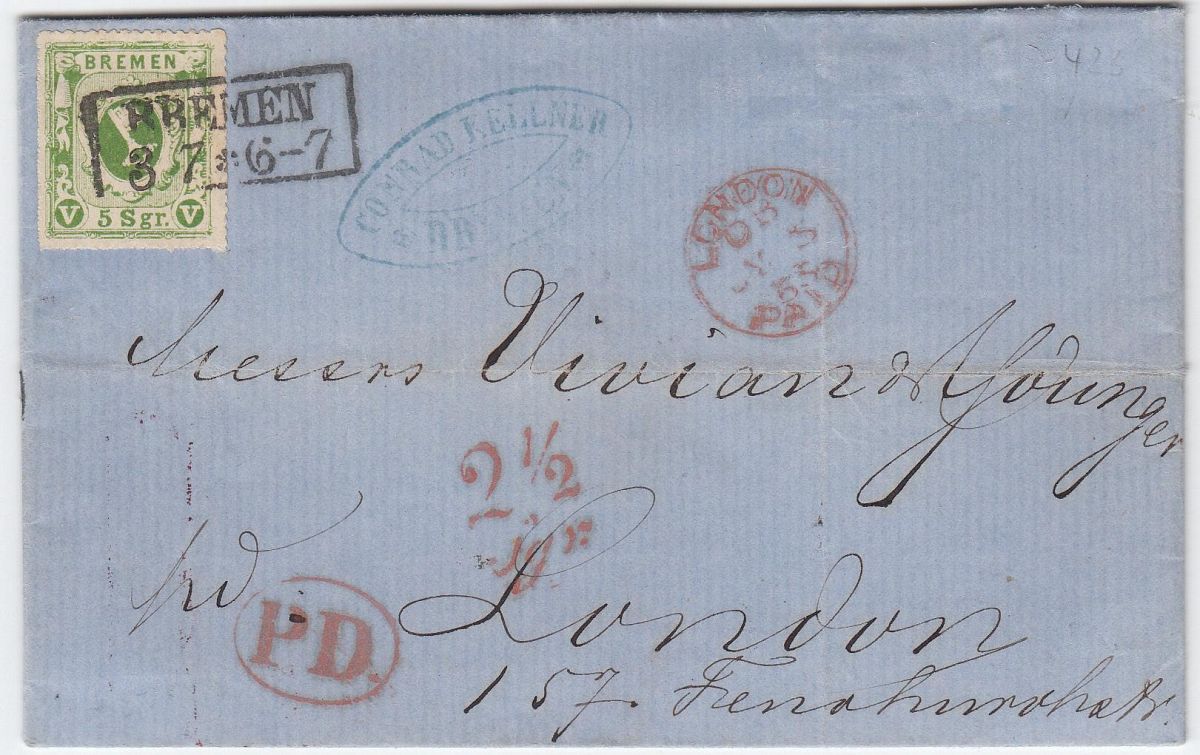 BREMEN
V 5 Sgr. V
BREMEN
3 7 * 6-7
CONRAD KELLNER
LONDON
PAID
Messrs Vivian & Younger
2 1/2
pd
London
P.D.
157. Fenchurchstr.
425